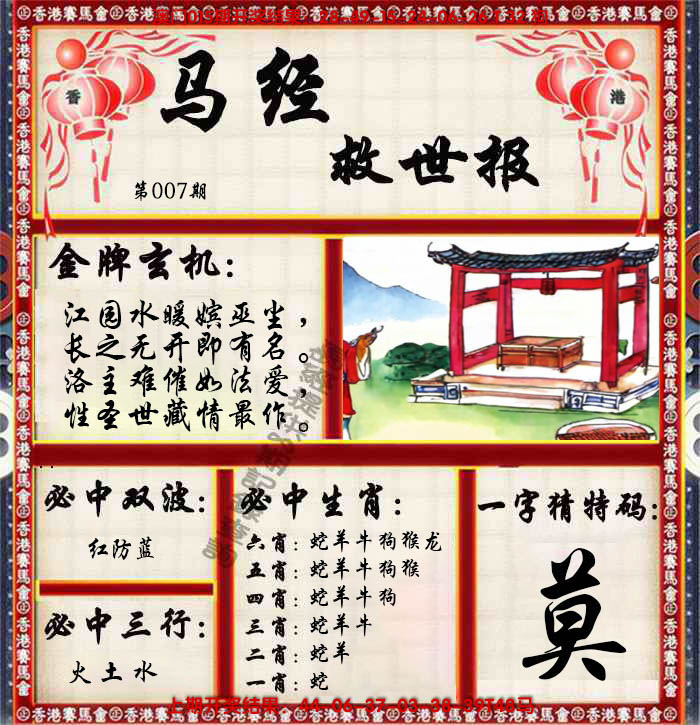 香港
马经
救世报
第007期
金牌玄机:
江园水暖嫔巫尘，
长之无开即有名。
洛主难催如法爱，
性圣世藏情最作。
必中双波:
红防蓝
必中三行:
火土水
必中生肖:
六肖: 蛇羊牛狗猴龙
五肖: 蛇羊牛狗猴
四肖: 蛇羊牛狗
三肖: 蛇羊牛
二肖: 蛇羊
一肖: 蛇
一字猜特码:
莫
上期开奖结果: 44-06-37-03-30-39T48号
香港賽馬會